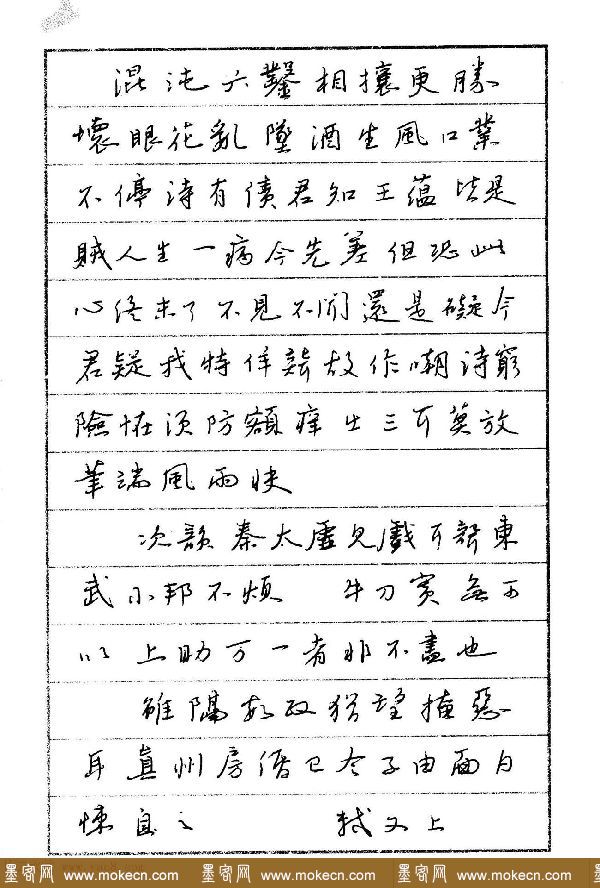 混沌六鑿相攘更勝
壞眼花亂墜酒生風口業
不停詩有債君知五蘊皆是
賊人生一病今先差但恐此
心終未了不見不聞還是礙今
君疑我特佯聾故作嘲詩窮
險怪須防額癢出三耳莫放
筆端風雨快
次韻秦太虛見戲耳聾東
武小邦不煩 牛刀實無可
以上助万一者非不盡也
雖隔數政猶望掩惡
耳真州房緡已令子由面白
悚息之 軾又上
墨客网 www.mokecn.com 墨客网 www.mokecn.com 墨客网 www.mokecn.com